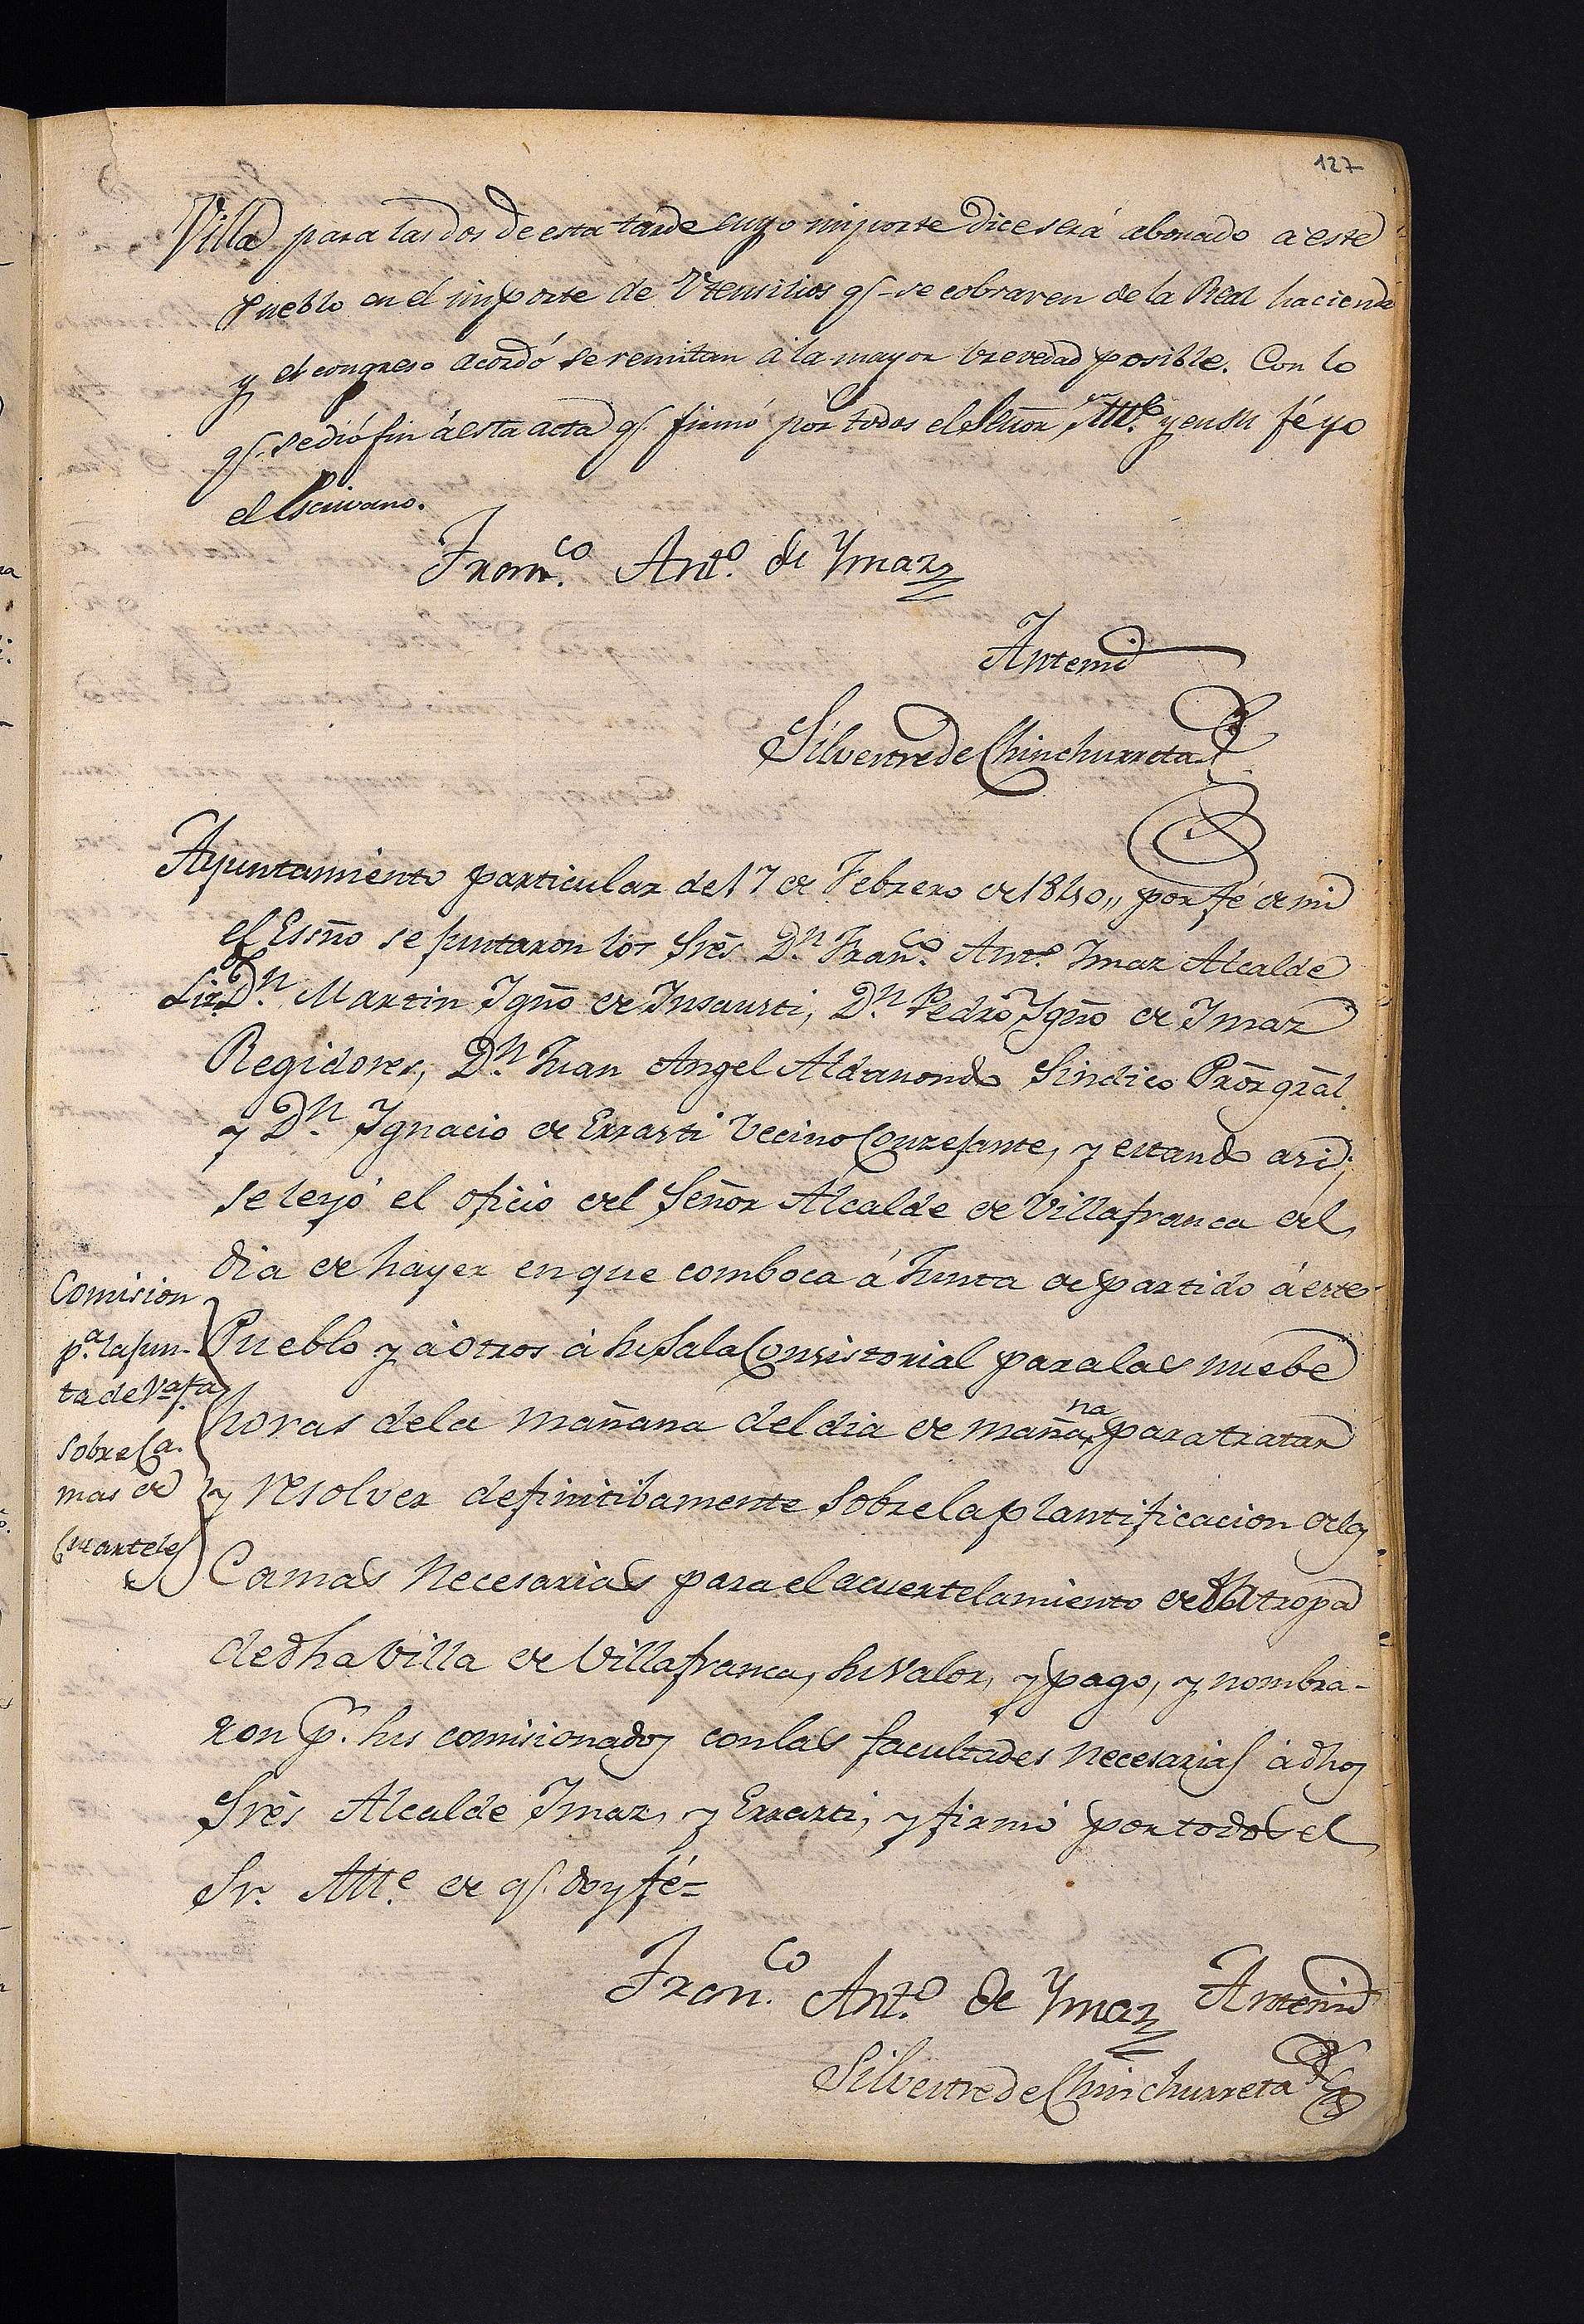 127
Villa para las dos de esta tarde cuyo importe dice será abonado a este
Pueblo en el importe de Vtensilios q.e se cobraren de la Real hacienda
y el congreso acordó se remitan á la mayor brevedad posible. Con lo
q.e se dió fin á esta acta q.e firmó por todos el Señor Alle. y en su fé yo
el Escrivano.
Fran.co Ant.o de Ymaz
Antemi
Silvestre de Chinchurreta
Ayuntamiento particular del 17 de Febrero de 1840,, por fé de mi
el Essño se juntaron los Srēs D.n Fran.co Ant.o Imaz Alcalde
D.n Martin Igño de Insausti, D.n Pedro Igño de Imaz
Regidores, D.n Juan Angel Aldanondo Sindico Prōr grāl.
y D.n Ignacio de Errasti Vecino Conzejante, y estando asi,
se leyó el oficio del Señor Alcalde de Villafranca del
dia de hayer en que comboca á Junta de partido á este
Pueblo y á otros á su Sala Consistorial para las nuebe
horas de la mañana del dia de mañana para tratar
y resolver definitibamente sobre la plantificacion de las
Camas necesarias para el acuertelamiento de la tropa
de dha Villa de Villafranca, su valor, y pago, y nombra-
ron p.r sus comisionados con las facultades necesarias á dhos
Srēs Alcalde Imaz, y Errazti, y firmó por todos el
Sr. Alle. de q.e doy fé=
Comision
p.a la jun-
ta de Va.fa.
sobre Ca-
mas de
Cuarteles
Fran.co Ant.o de Ymaz Antemi
Silvestre de Chinchurreta